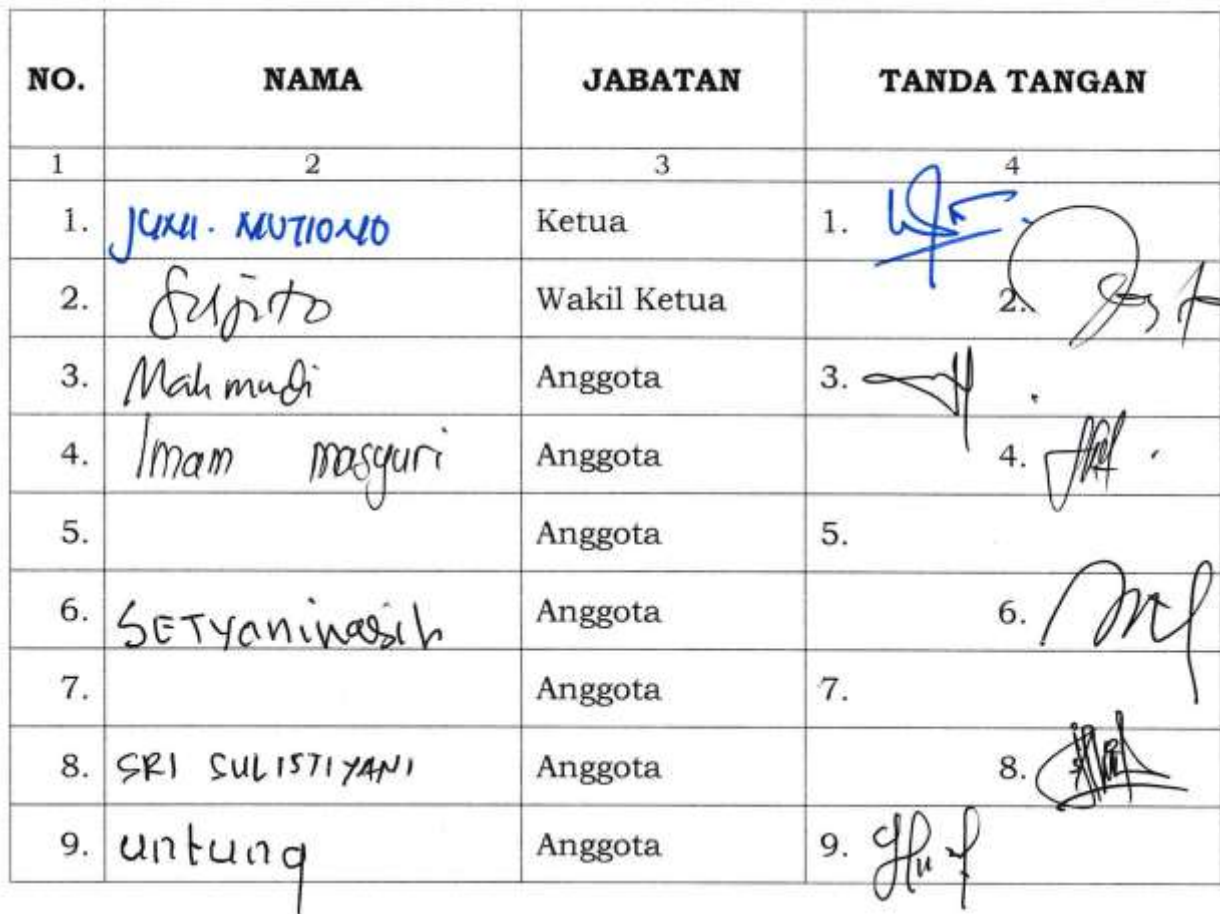 NO. NAMA JABATAN TANDA TANGAN
1 2 3 4
1. Ketua 1.
2. Sujito Wakil Ketua 2.
3. Mahmudi Anggota 3.
4. Imam masyuri Anggota 4.
5. Anggota 5.
6. SETYaningsih Anggota 6.
7. Anggota 7.
8. SRI SULISTIYANI Anggota 8.
9. untung Anggota 9.